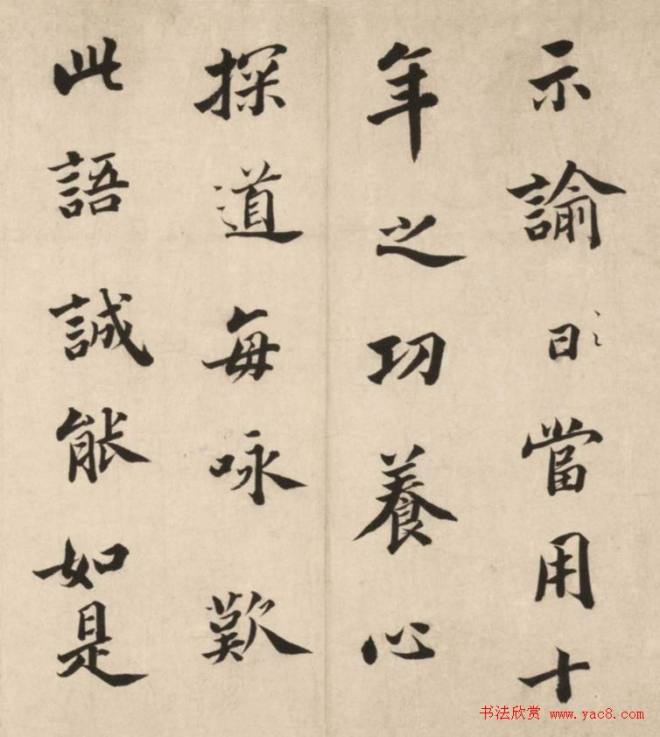 示諭曰當用十
年之功養心
探道每咏歎
此語誠能如是
书法欣赏 www.yac8.com